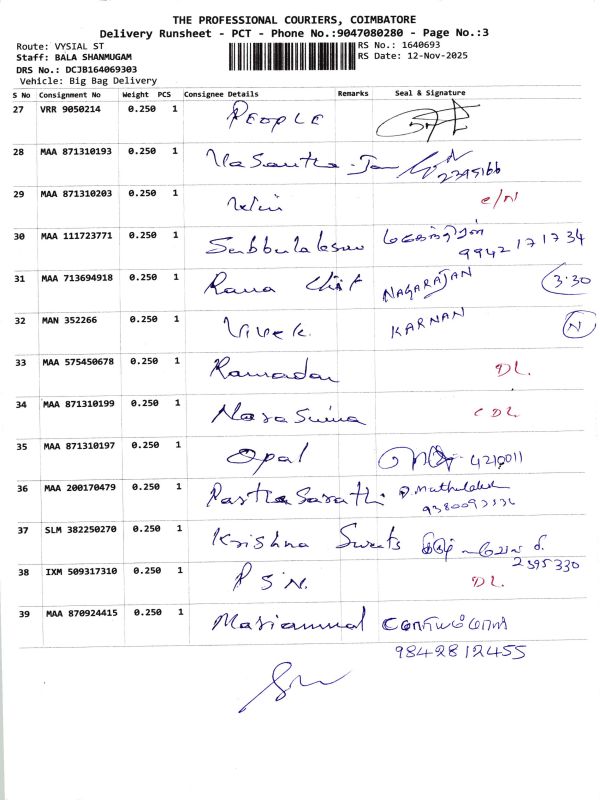 THE PROFESSIONAL COURIERS, COIMBATORE
Delivery Runsheet - PCT - Phone No.:9047080280 - Page No.:3
Route: VYSIAL ST
RS No.: 1640693
Staff: BALA SHANMUGAM
RS Date: 12-Nov-2025
DRS No.: DCJB164069303
Vehicle: Big Bag Delivery
S No Consignment No Weight PCS Consignee Details Remarks Seal & Signature
27 VRR 9050214 0.250 1 PEOPLE
28 MAA 871310193 0.250 1 Vasantha 2395166
29 MAA 871310203 0.250 1 c/N
30 MAA 111723771 0.250 1 மகேந்திரன்
9942171734
31 MAA 713694918 0.250 1 Rana Chit NAGARAJAN 3.30
32 MAN 352266 0.250 1 Vivek. KARNAN N
33 MAA 575450678 0.250 1 DL.
34 MAA 871310199 0.250 1 CDL.
35 MAA 871310197 0.250 1 Opal
36 MAA 200170479 0.250 1 Parthasarathi
37 SLM 382250270 0.250 1 Krishna Sweets
2395330
38 IXM 509317310 0.250 1 PSN. DL.
39 MAA 870924415 0.250 1 Mariammal
9842812455